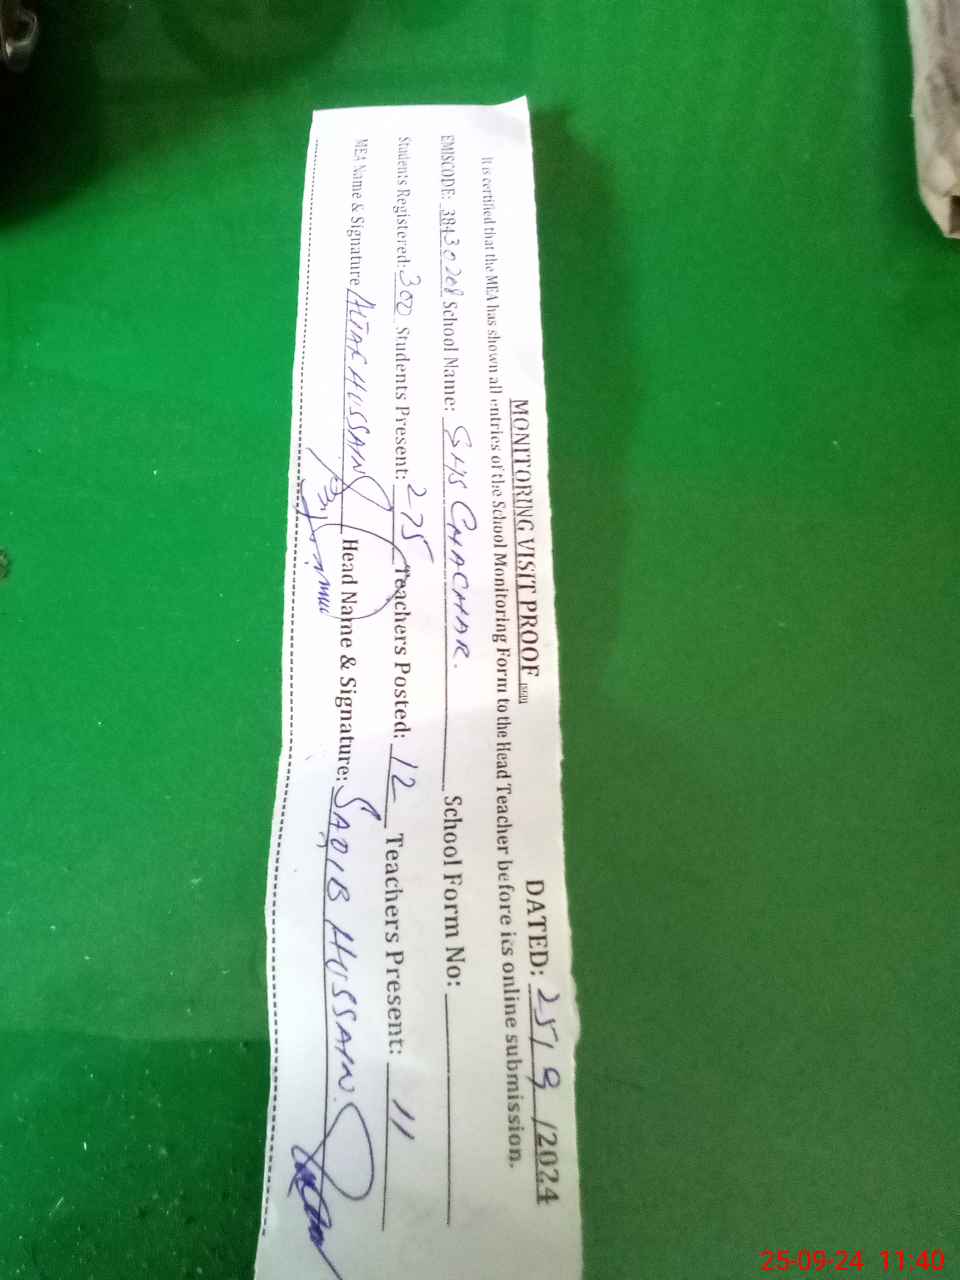 MONITORING VISIT PROOF DATED: 25/9/2024
It is certified that the MEA has shown all entries of the School Monitoring Form to the Head Teacher before its online submission.
EMISCODE: 38430208 School Name: GHS CHACHAR. School Form No:
Students Registered: 300 Students Present: 275 Teachers Posted: 12 Teachers Present: 11
MEA Name & Signature ALTAF HUSSAIN Head Name & Signature: SADIB HUSSAIN
25-09-24 11:40